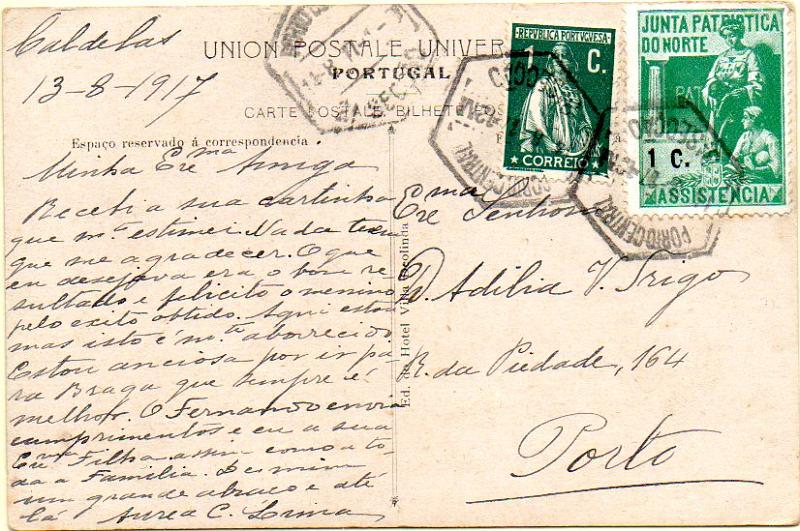 Caldelas
13-8-1917
UNION POSTALE UNIVER
PORTUGAL
CARTE POSTALE BILHETE
Espaço reservado á correspondencia
REPUBLICA PORTUGUESA
1 C.
CORREIO
JUNTA PATRIOTICA
DO NORTE
PAT
1 C.
ASSISTENCIA
PORTO CENTRAL
PORTO CENTRAL
Minha Exᵐᵃ Amiga
Recebi a sua cartinha
que mᵗᵒ estimei. Nada tem
que me agradecer. O que
eu desejava era o bom re
sultado e felicito o menino
pelo exito obtido. Aqui estou
mas isto é m.ᵗᵒ aborrecido
Estou anciosa por ir pa
ra Braga que sempre é
melhor. O Fernando envia
cumprimentos e eu a sua
Exᵐᵃ Filha assim como a to
da a Familia. De mim
um grande abraço e até
lá Aurea C. Lima
Ed. do Hotel Villa Escolinda
Exᵐᵃ Senhora
D. Adilia V. Trigo
R. da Piedade, 164
Porto